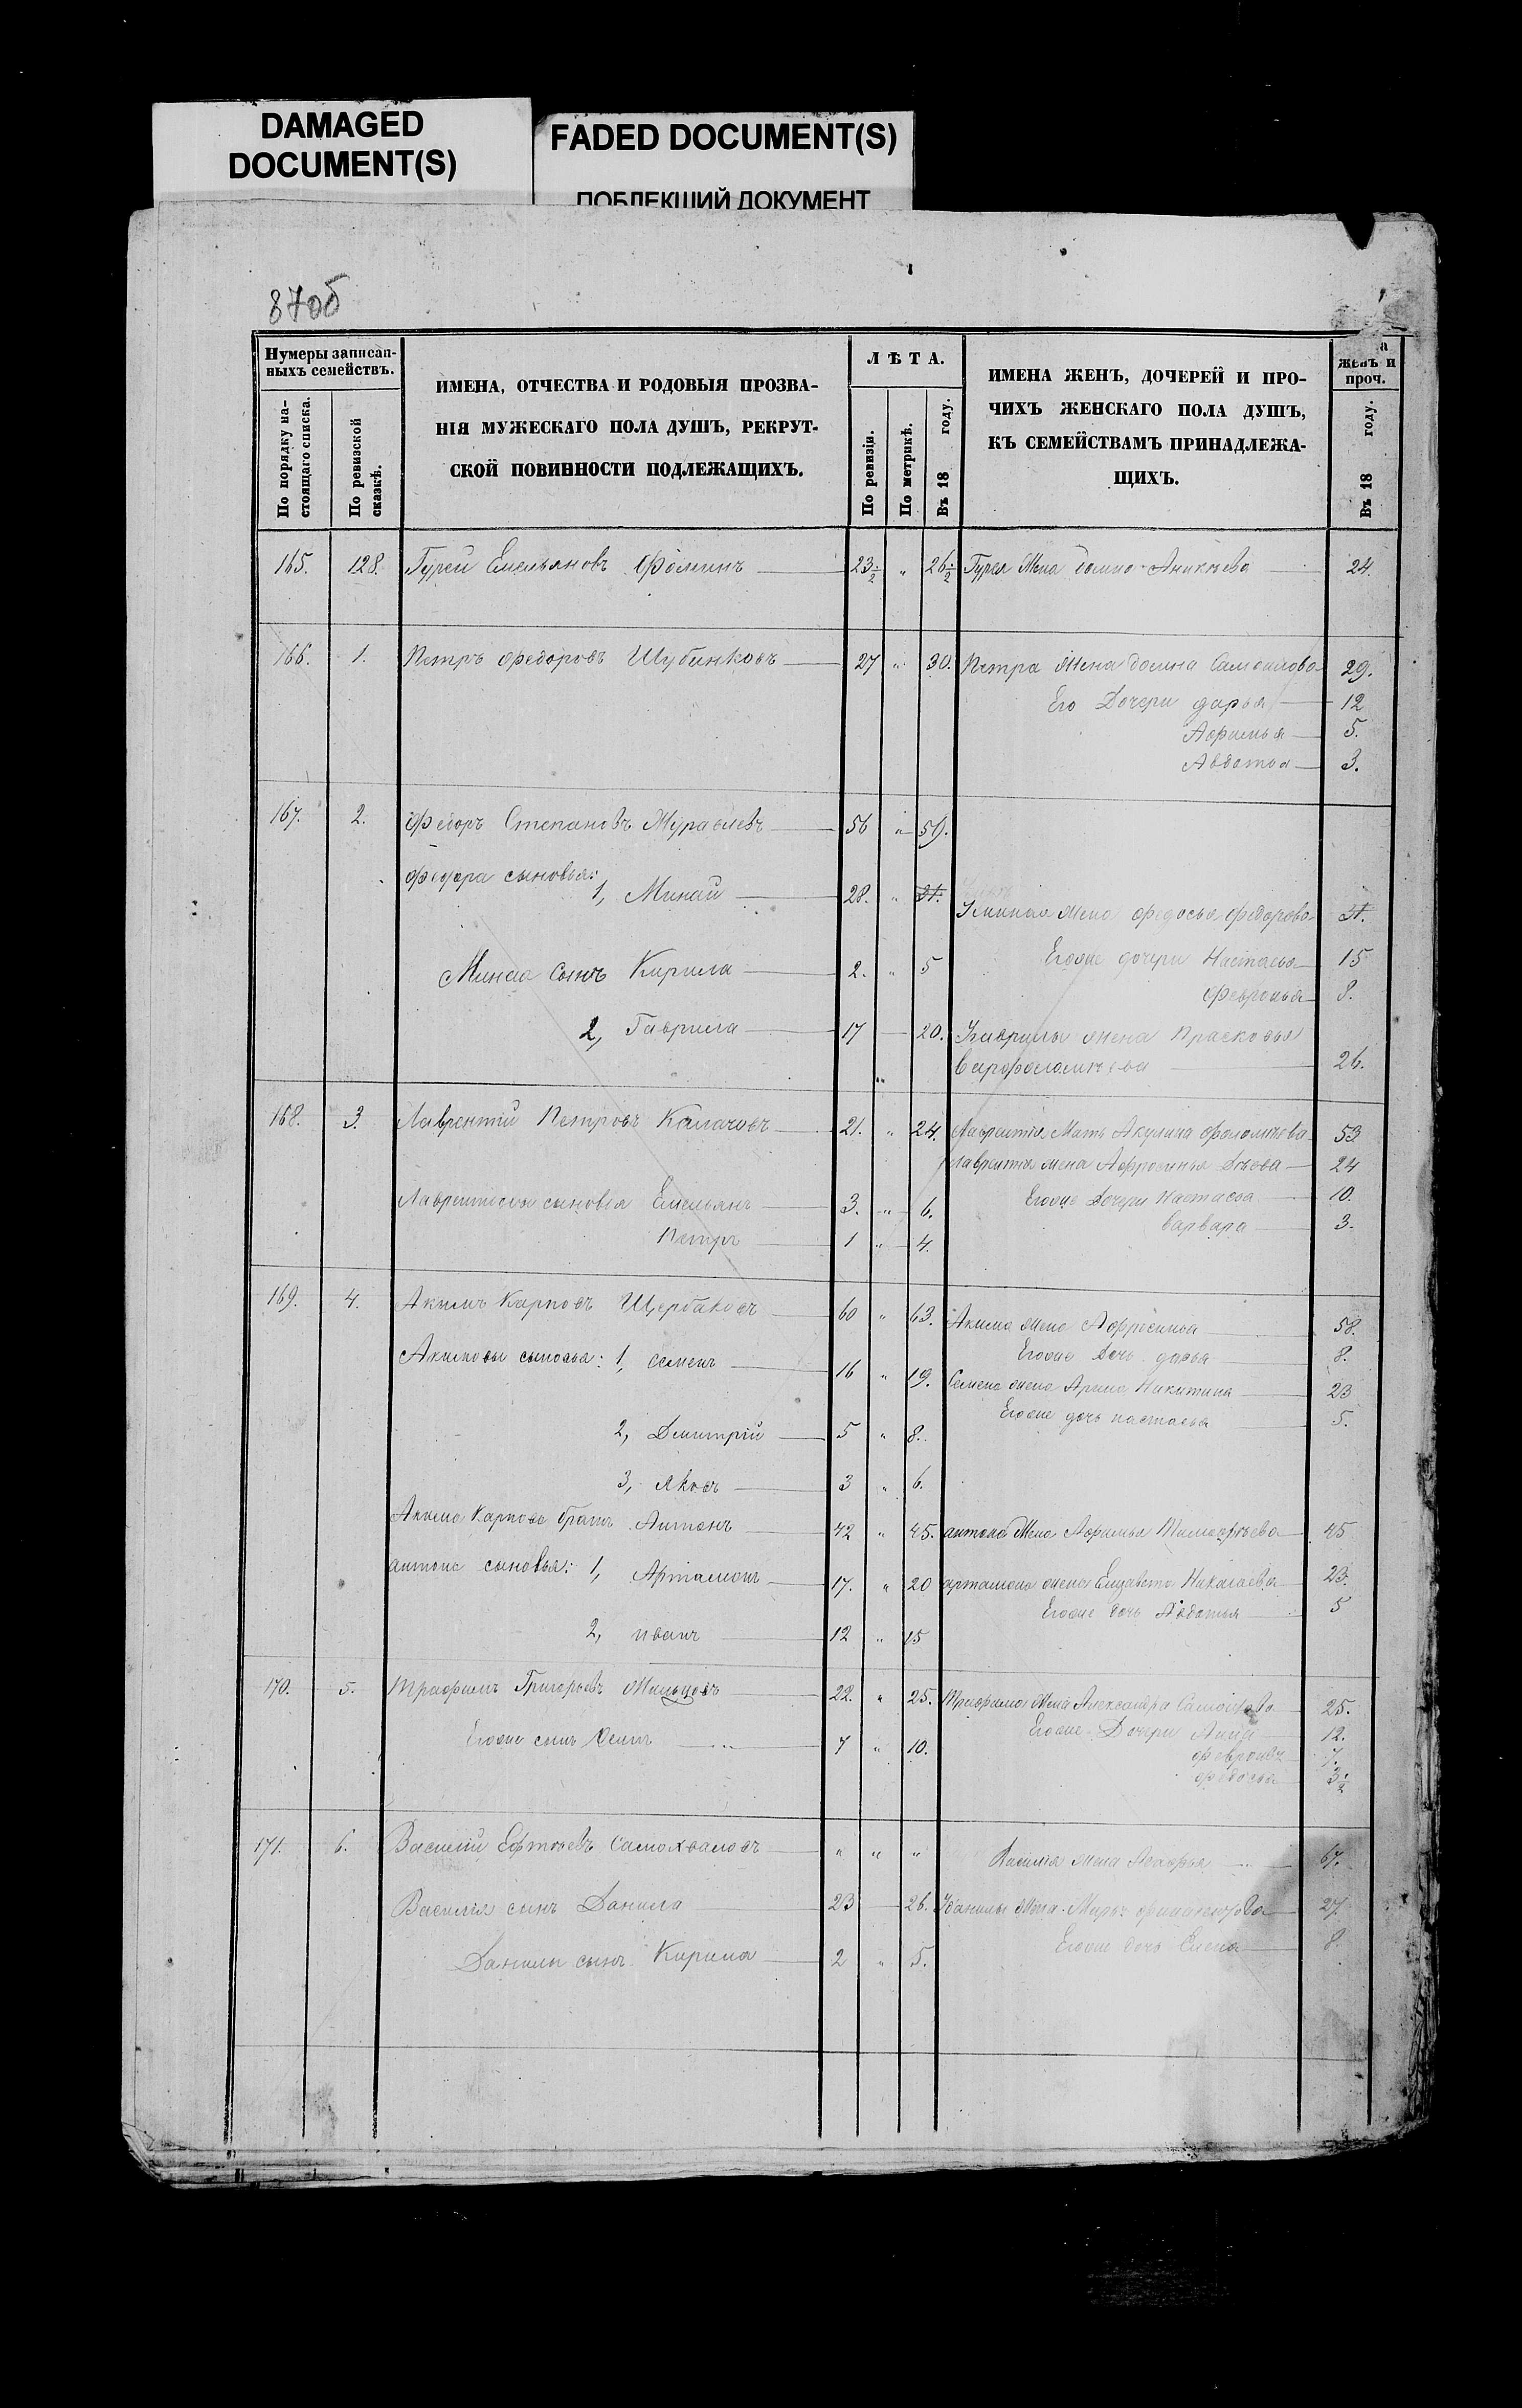 DAMAGED
DOCUMENT(S)
FADED DOCUMENT(S)
ПОБЛЕКШИЙ ДОКУМЕНТ
87об
Нумеры записан-
ныхъ семействъ.
По порядку на-
стоящаго списка.
По ревизской
сказкѣ.
ИМЕНА, ОТЧЕСТВА И РОДОВЫЯ ПРОЗВА-
НІЯ МУЖЕСКАГО ПОЛА ДУШЪ, РЕКРУТ-
СКОЙ ПОВИННОСТИ ПОДЛЕЖАЩИХЪ.
ЛѢТА.
По ревизіи.
По метрикѣ.
Въ 18 году.
ИМЕНА ЖЕНЪ, ДОЧЕРЕЙ И ПРО-
ЧИХЪ ЖЕНСКАГО ПОЛА ДУШЪ,
КЪ СЕМЕЙСТВАМЪ ПРИНАДЛЕЖА-
ЩИХЪ.
женъ и
проч.
Въ 18 году.
165. 128. Гурей Емельяновъ Фоминъ 23½ " 26½ Гурея жена Домна Аникѣева 24.
166. 1. Петръ Федоровъ Шубинковъ 27 " 30. Петра жена Домна Самойлова 29.
Его Дочери дарья 12
Афимья 5.
Авдотья 3.
167. 2. Федоръ Степановъ Муравлевъ 56 " 59.
Федора сыновья:
1, Минай 28. " 31. Уминая жена федосья Федорова 31.
Минаа Сынъ Кирила 2. " 5 Егоже дочери Настасья 15
Февронья 8.
2, Гаврила 17 20. Угаврилы жена Прасковья
26.
168. 3. Лаврентій Петровъ Калачовъ 21. " 24. Лаврентія Мать Акулина 53
Лаврентія жена Афросинья 24
Лаврентьевы сыновья Емельянъ 3. " 6. Егоже Дочери Настасья 10.
Петръ 1 " 4. Варвара 3.
169. 4. Акимъ Карповъ Щербаковъ 60 " 63. Акима жена Афросинья 58.
Егоже Дочь дарья 8.
Акимовы сыновья: 1, семенъ 16 " 19. Семена жена Арина Никитина 23
Егоже дочь настасья 5.
2, Дмитрій 5 " 8.
3, Яковъ 3 " 6.
Акима Карпова братъ Антонъ 42 " 45. антона жена Афимья Тимофѣева 45
антона сыновья: 1, Артамонъ 17. " 20 артамона жена Елизавета Николаева 23.
Егоже дочь Авдотья 5
2, иванъ 12 " 15
170. 5. Трафимъ Григорьевъ 22. " 25. Трафима жена Александра 25.
Егоже сынъ Осипъ 7 " 10. Егоже Дочери 12.
февронья 7.
федосья 3½
171. 6. Василий Ефтѣевъ Самохваловъ " " " Василія жена 67.
Василія сынъ Данила 23 26. Уданилы жена 27.
Данилы сынъ Кирила 2 " 5. Егоже дочь Елена 8.